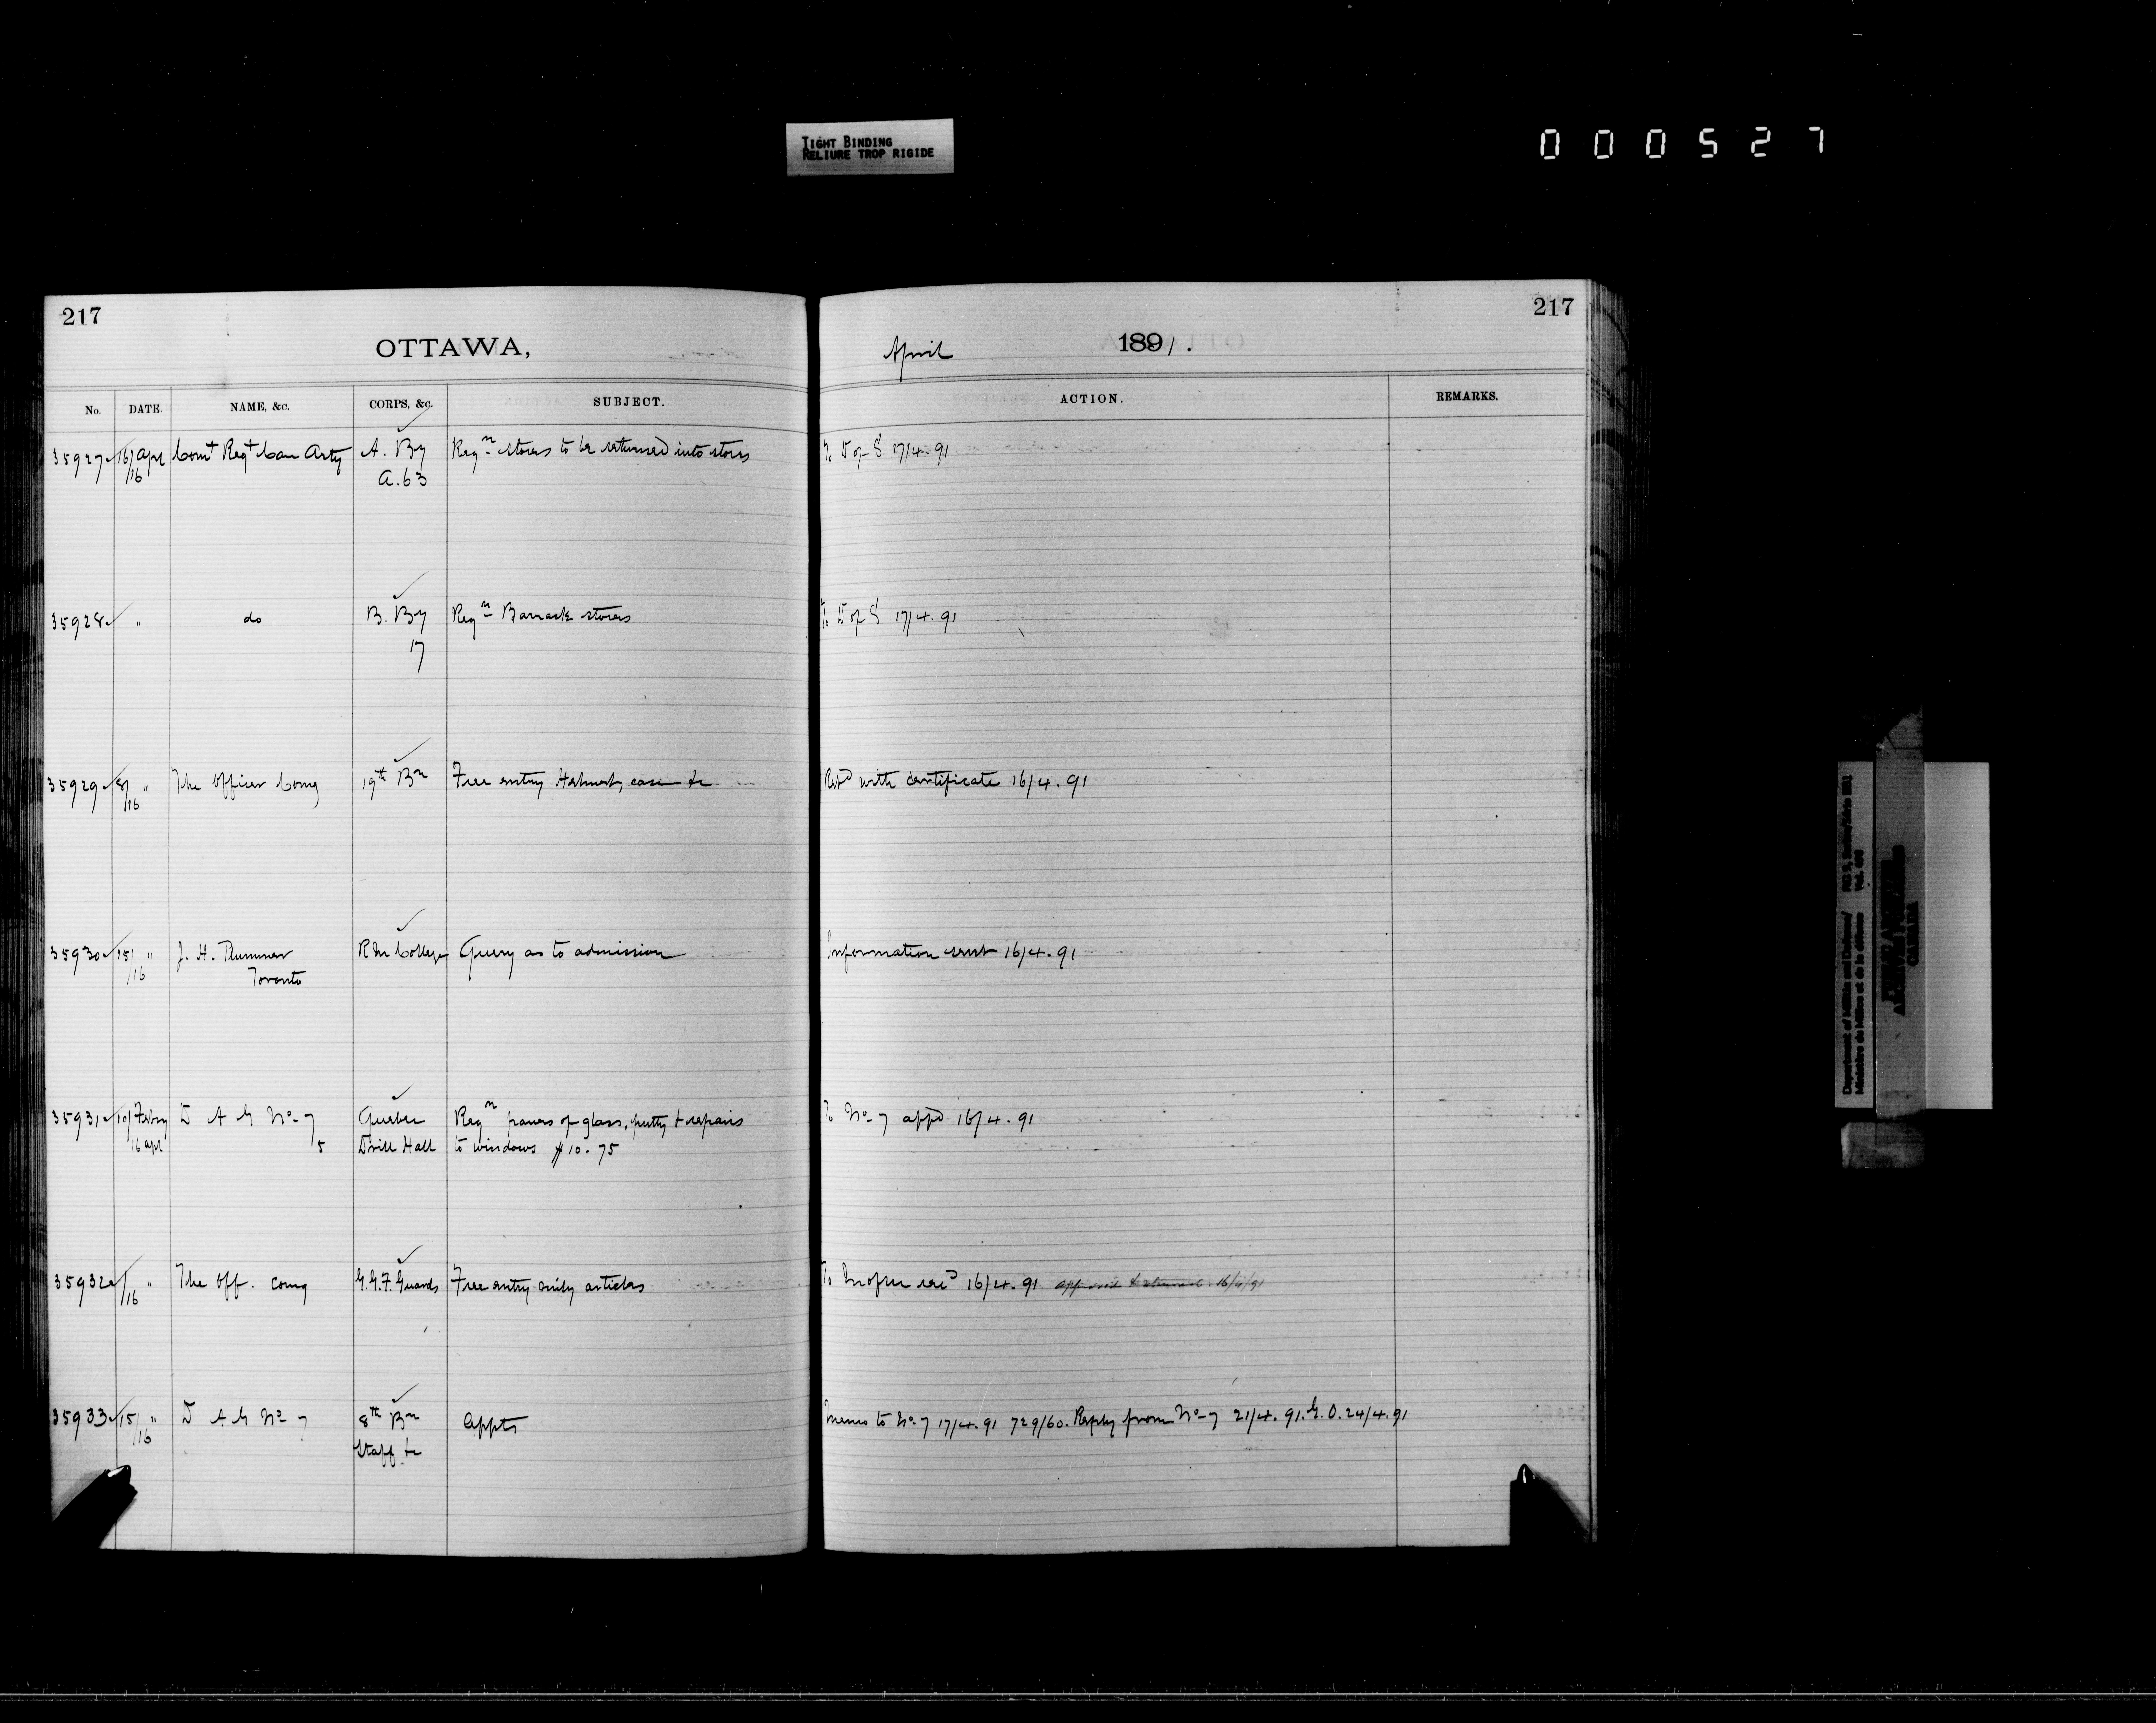 TIGHT BINDING
RELIURE TROP RIGIDE
000527
217
OTTAWA,
No. DATE. NAME, &c. CORPS, &c. SUBJECT.
35927 16/16 Apl Comt Regt Can Arty A. By Reqn stores to be returned into stores
A.63
35928 " do B. By Reqn Barrack stores
17
35929 8/16 " The Officer Comg 19th Bn Free entry Helmet, case &c
35930 15/16 " J. H. Plummer R M College Query as to admission
Toronto
35931 10/ Febry D A G No 7 Quebec Reqn panes of glass, putty & repairs
16 apl 5 Drill Hall to windows $10.75
35932 /16 " The Off. Comg G.G.F. Guards Free entry mily articles
35933 15/16 " D A G No 7 8th Bn Appts
Staff &c
217
April 1891.
ACTION. REMARKS.
To D of S 17/4.91
To D of S 17/4.91
Retd with certificate 16/4.91
Information sent 16/4.91
To No 7 appd 16/4.91
To 16/4.91 16/4/91
Memo to No 7 17/4.91 729/60. Reply from No 7 21/4.91. G.O. 24/4.91
Department of Militia and Defence/
Ministère de Milice et de la défense